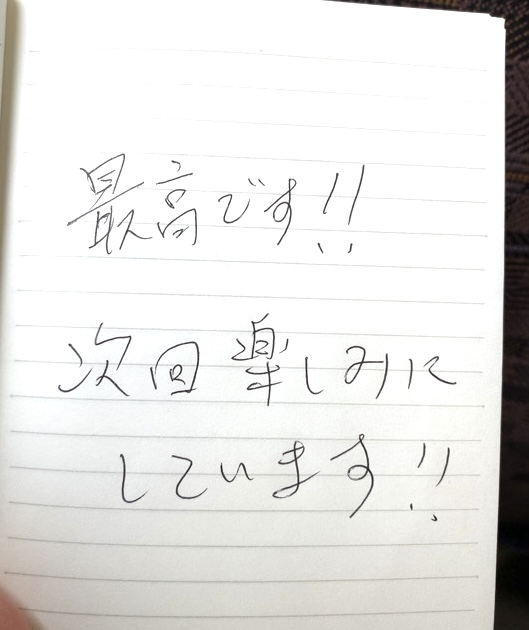 最高です!!
次回楽しみに
しています!!